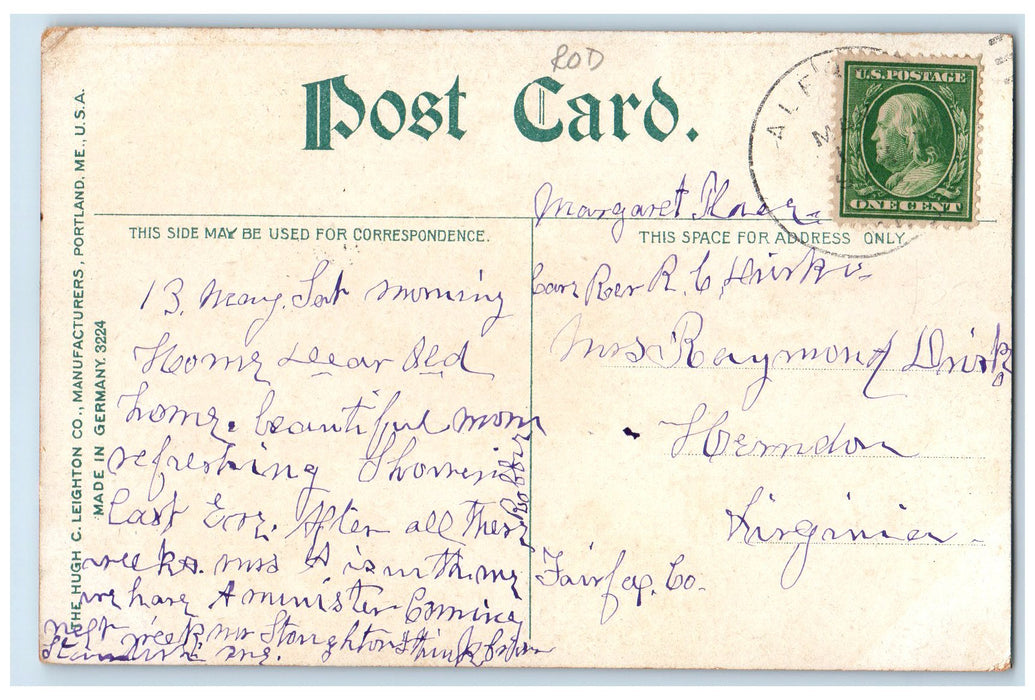 ROD
Post Card.
ALF
MA
U.S. POSTAGE
ONE CENT
THE HUGH C. LEIGHTON CO., MANUFACTURERS, PORTLAND, ME., U.S.A.
MADE IN GERMANY. 3224
THIS SIDE MAY BE USED FOR CORRESPONDENCE.
13. May. Sat morning
Home Dear Old
home. beautiful morn
refreshing Showers
Last Eve. After all these
weeks. Mrs A is with me
we have A minister Coming
next week mr Stoughton I think from
Bobbie
Margaret
THIS SPACE FOR ADDRESS ONLY.
Care Rev R. C.
Mrs Raymond
Herndon
Virginia.
Fairfax. Co.